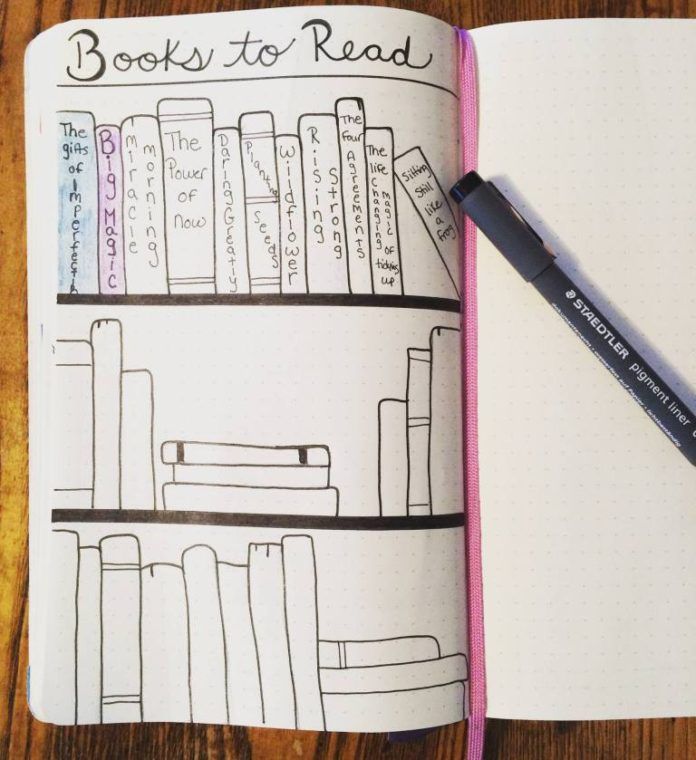 Books to Read
The
gifts
of
Imperfecti
Big Magic
miracle
morning
The
Power
of
Now
Daring Greatly
Planting
Seeds
Wildflower
Rising
Strong
The
four
Agreements
The
life
changing
magic of
tidying
up
Sitting
Still
like
a
frog
STAEDTLER pigment liner